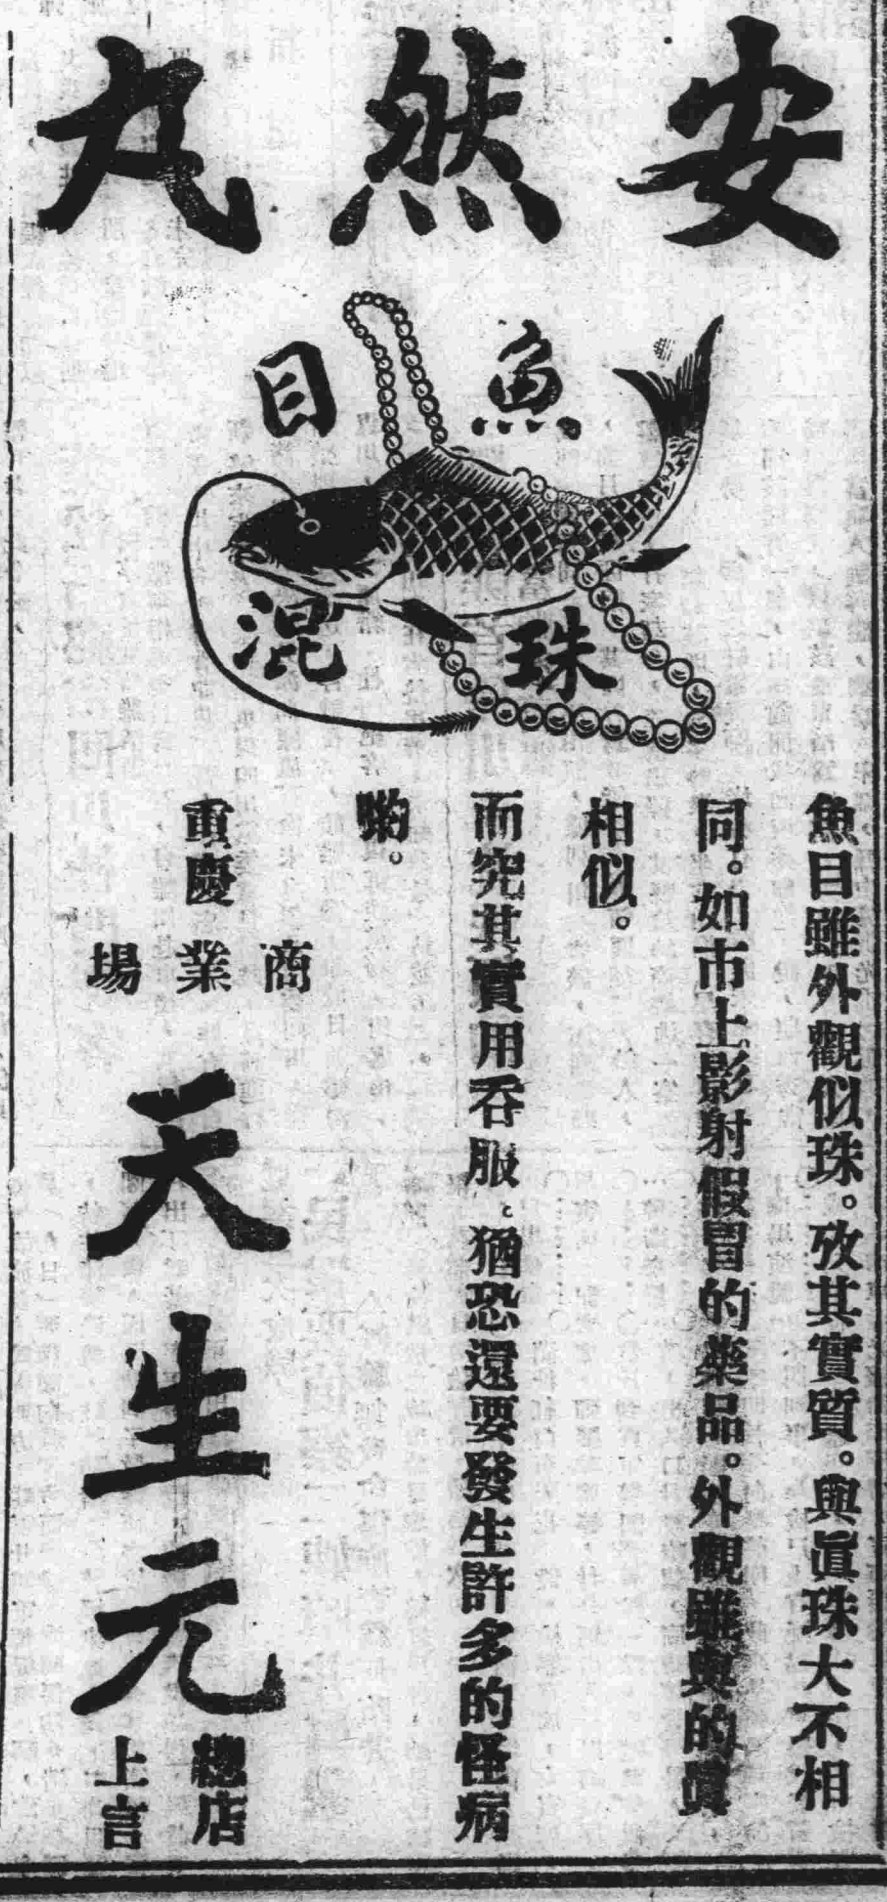 安然丸
魚目
混珠
魚目雖外觀似珠。攷其實質。與眞珠大不相
同。如市上影射假冒的藥品。外觀雖與的眞
相似。
而究其實用吞服。猶恐還要發生許多的怪病
喲。
重慶
商業場
天生元
總店
上言